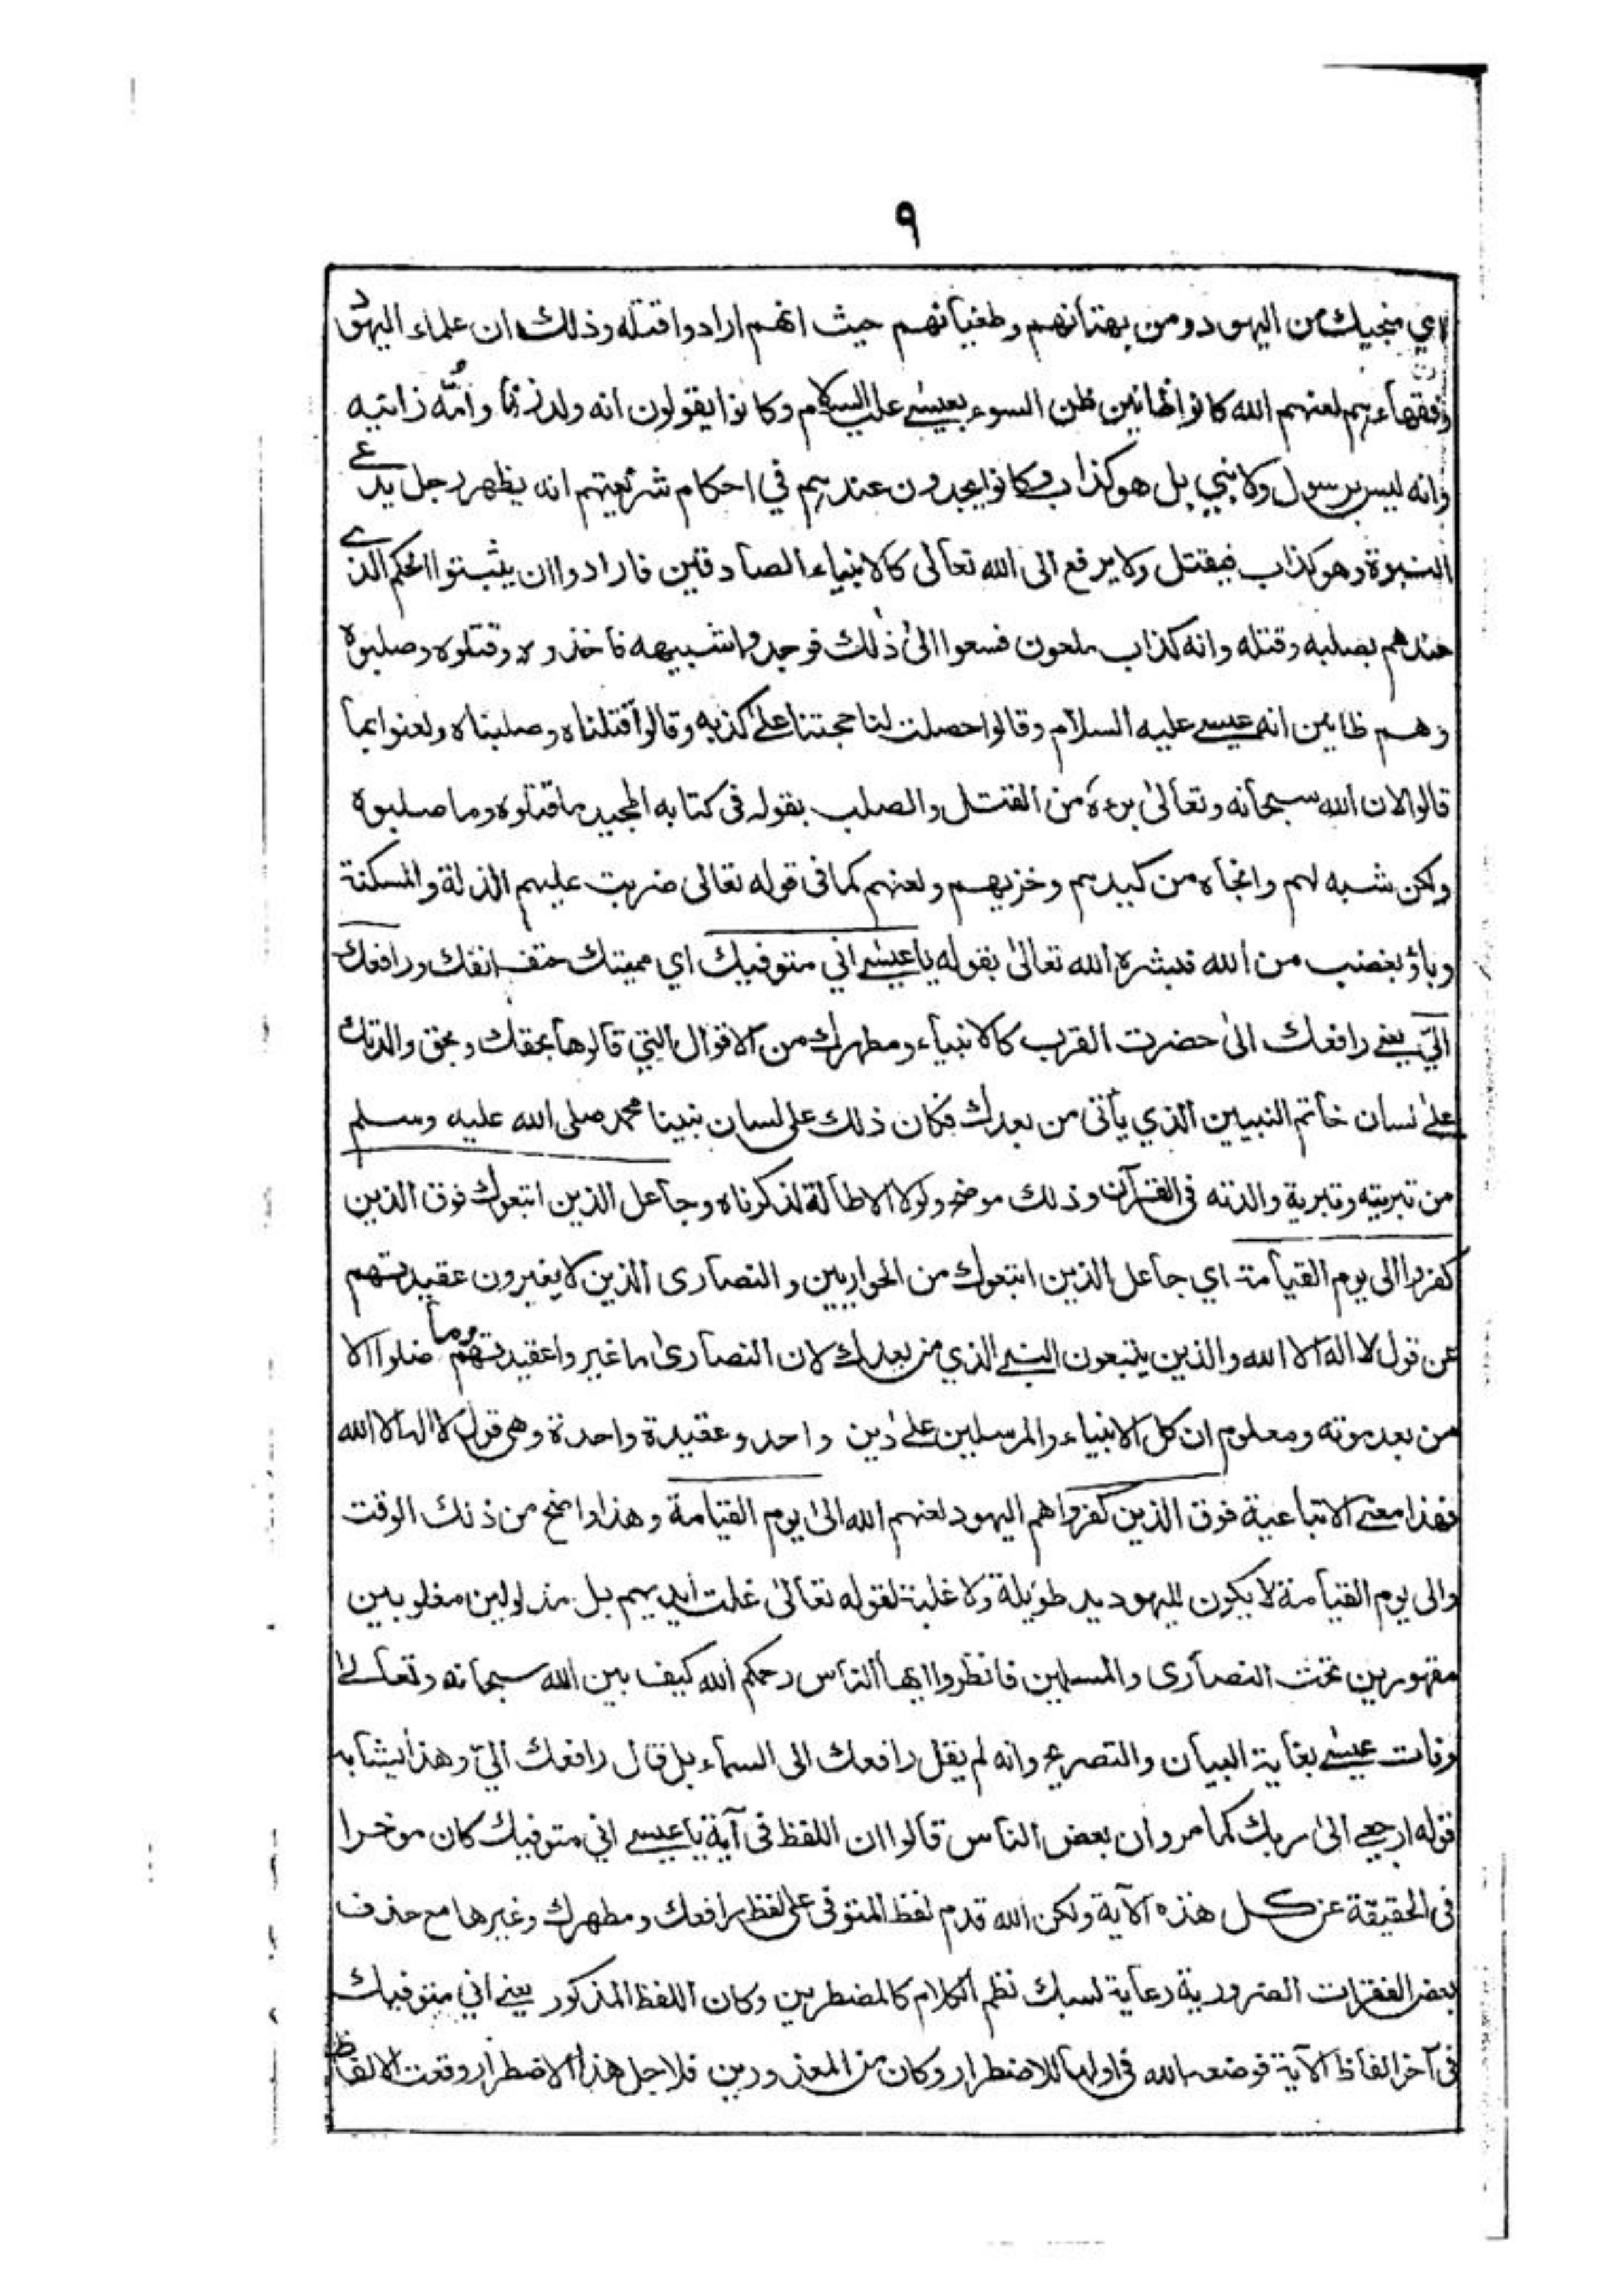 ٩
اي منجيك من اليهود ومن بهتانهم وطغيانهم حيث انهم ارادوا قتله وذلك ان علماء اليهود
وفقهاءهم لعنهم الله كانوا ظانين ظن السوء بعيسى عليه السلام وكانوا يقولون انه ولد زنا وامّه زانيه
وانه ليس برسول ولا نبي بل هو كذاب وكانوا يجدون عندهم في احكام شريعتهم انه يظهر رجل يدعى
النبوة وهو كذاب فيقتل ولا يرفع الى الله تعالى كالانبياء الصادقين فارادوا ان يثبتوا الحكم الذى
عندهم بصلبه وقتله وانه كذاب ملعون فسعوا الى ذلك فوجدوا شبيهه فاخذوه وقتلوه وصلبوه
وهم ظانين انه عيسى عليه السلام وقالوا حصلت لنا حجتنا على كذبه وقالوا قتلناه وصلبناه ولعنوا بما
قالوا لان الله سبحانه وتعالى برءه من القتل والصلب بقوله فى كتابه المجيد ما قتلوه وما صلبوه
ولكن شبه لهم وانجاه من كيدهم وخزيهم ولعنهم كما فى قوله تعالى ضربت عليهم الذلة والمسكنة
وباؤ بغضب من الله فبشره الله تعالى بقوله يا عيسى اني متوفيك اي مميتك حتف انفك ورافعك
اليّ يعنى رافعك الى حضرت القرب كالانبياء ومطهرك من الاقوال التي قالوها بحقك وبحق والدتك
على لسان خاتم النبيين الذي يأتى من بعدك فكان ذلك على لسان نبينا محمد صلى الله عليه وسلم
من تبريته وتبرية والدته فى القرآن وذلك موضح ولولا الاطالة لذكرناه وجاعل الذين اتبعوك فوق الذين
كفروا الى يوم القيامة اي جاعل الذين اتبعوك من الحواريين والنصارى الذين لا يغيرون عقيدتهم
عن قول لا اله الا الله والذين يتبعون النبى الذي من بعدك لان النصارى ما غيروا عقيدتهم وما ضلوا الا
من بعد موته ومعلوم ان كل الانبياء والمرسلين على دين واحد وعقيدة واحدة وهى قول لا اله الا الله
فهذا معنى الاتباعية فوق الذين كفروا هم اليهود لعنهم الله الى يوم القيامة وهذا واضح من ذلك الوقت
والى يوم القيامة لا يكون لليهود يد طويلة ولا غلبة لقوله تعالى غلت ايديهم بل مذلولين مغلوبين
مقهورين تحت النصارى والمسلمين فانظروا ايها الناس رحمكم الله كيف بين الله سبحانه وتعالى
وفات عيسى بغاية البيان والتصريح وانه لم يقل رافعك الى السماء بل قال رافعك اليّ وهذا يشابه
قوله ارجعى الى ربك كما مر وان بعض الناس قالوا ان اللفظ فى آية يا عيسى اني متوفيك كان موخرا
فى الحقيقة عن كل هذه الآية ولكن الله قدم لفظ المتوفى على لفظ رافعك ومطهرك وغيرها مع حذف
بعض الفقرات الضرورية رعاية لسبك نظم الكلام كالمضطرين وكان اللفظ المذكور يعنى اني متوفيك
فى آخر الفاظ الآية فوضعه الله فى اولها للاضطرار وكان من المعذورين فلاجل هذا الاضطرار وقعت الالفاظ